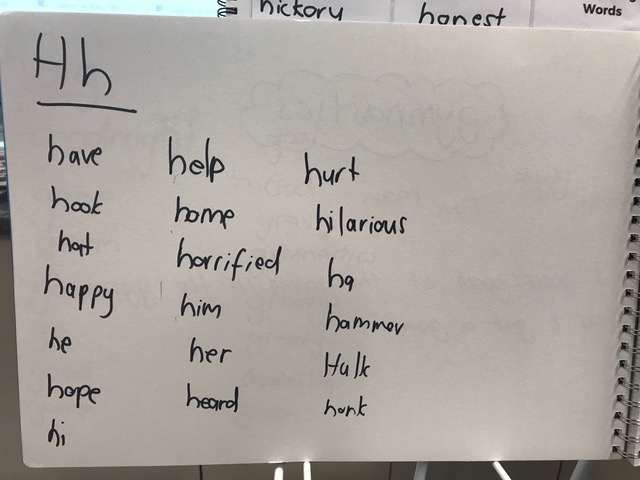 hickory honest Words
Hh
have help hurt
hook home hilarious
hat horrified ha
happy him hammer
he her Hulk
hope heard honk
hi